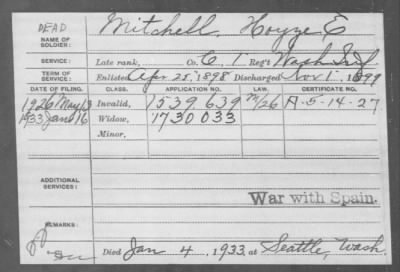 DEAD
NAME OF SOLDIER: Mitchell, Hoyze E
SERVICE: Late rank, Co. C, 1 Reg't Wash Inf
TERM OF SERVICE: Enlisted Apr 28, 1898 Discharged Nov 1, 1899
DATE OF FILING. CLASS. APPLICATION NO. LAW. CERTIFICATE NO.
1926 May 13 Invalid, 1539,639 A-5-14-27
1933 Jan 16 Widow, 1730033
Minor,
ADDITIONAL SERVICES:
War with Spain.
REMARKS:
Died Jan 4, 1933, at Seattle, Wash.